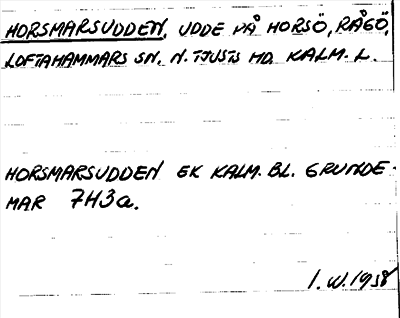 HORSMARSUDDEN, UDDE PÅ HORSÖ, RÅGÖ,
LOFTAHAMMARS SN, N. TJUSTS HD. KALM. L.
HORSMARSUDDEN EK KALM. BL. GRUNDE-
MAR 7H3a.
I.W. 1938